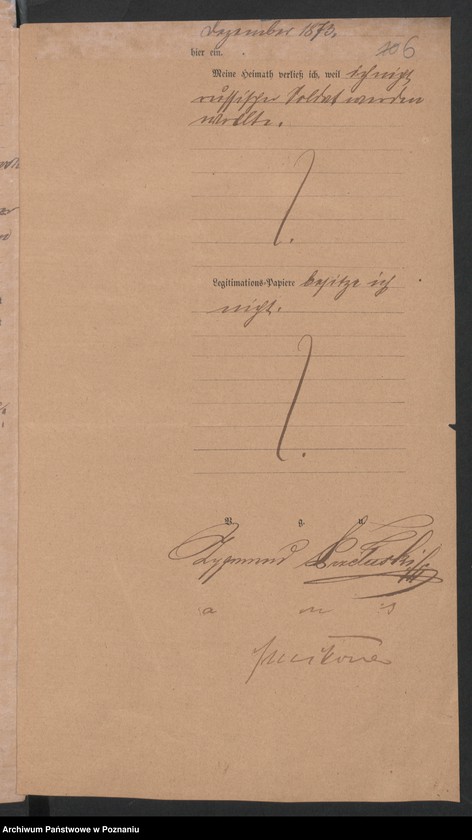 Dezember 1873.
106
hier ein.
Meine Heimath verließ ich, weil ich nicht
russischer Soldat werden
wollte.
Legitimations-Papiere besitze ich
nicht.
V. g. u.
Zygmund
a u s
Archiwum Państwowe w Poznaniu